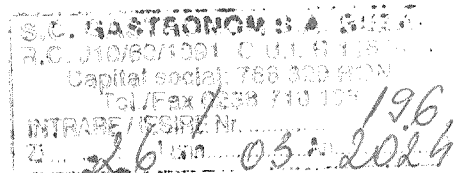 S.C. GASTRONOM S.A. BUZĂU
R.C. J10/60/1991 C.U.I. R
Capital social: 788 309 RON
Tel/Fax 0238 710
INTRARE / IESIRE Nr. 196
Zi 26 Luna 03 An 2024